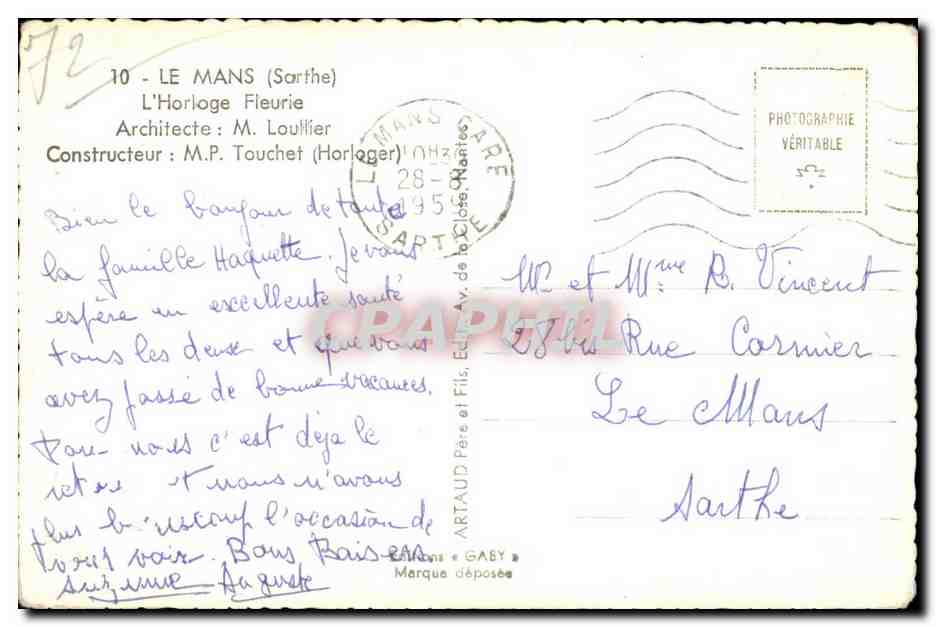 72
10 - LE MANS (Sarthe)
L'Horloge Fleurie
Architecte : M. Loullier
Constructeur : M.P. Touchet (Horloger)
LE MANS GARE
28-
1959
SARTHE
PHOTOGRAPHIE
VÉRITABLE
Bien le bonjour de toute
la famille Haquette. Je vous
espère en excellente santé
tous les deux et que vous
avez passé de bonne vacances.
Pour nous c'est déjà le
et nous n'avons
plus beaucoup l'occasion de
vous voir. Bons Baisers.
Suzanne Auguste
Mr et Mme R. Vincent
28 bis Rue Cormier
Le Mans
Sarthe
ARTAUD Père et Fils, Edit., Av. de la Close, Nantes
Editions « GABY »
Marque déposée
CPAPHIL